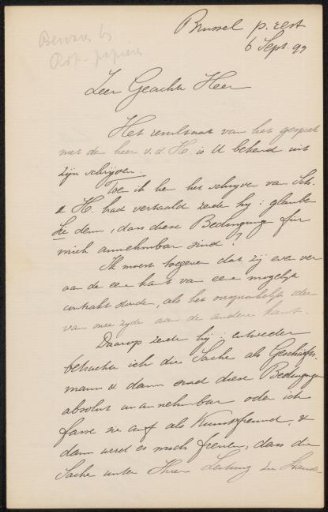 Brussel p. rest
6 Sept. 99
Bewaren bij
papieren
Zeer Geachte Heer
Het resultaat van het gesprek
met den heer v. d. H. is U bekend uit
zijn schrijven.
Toen ik hem het schrijven van Sch.
& H. had vertaald zeide hij: glauben
Sie denn, dass diese Bedingungen für
mich annehmbar sind?
Ik moest toegeven dat zij even ver
aan de eene kant van een mogelijk
contract stonde, als het
van onze zyde aan de andere kant.
Daarop zeide hij: entweder
betrachte ich die Sache als Geschäfts-
mann u. dann sind diese Bedingungen
absolut unannehmbar oder ich
fasse sie auf als Kunstfreund, &
dann würd es mich freuen, dass die
Sache unter Ihrer Leitung zu Stande